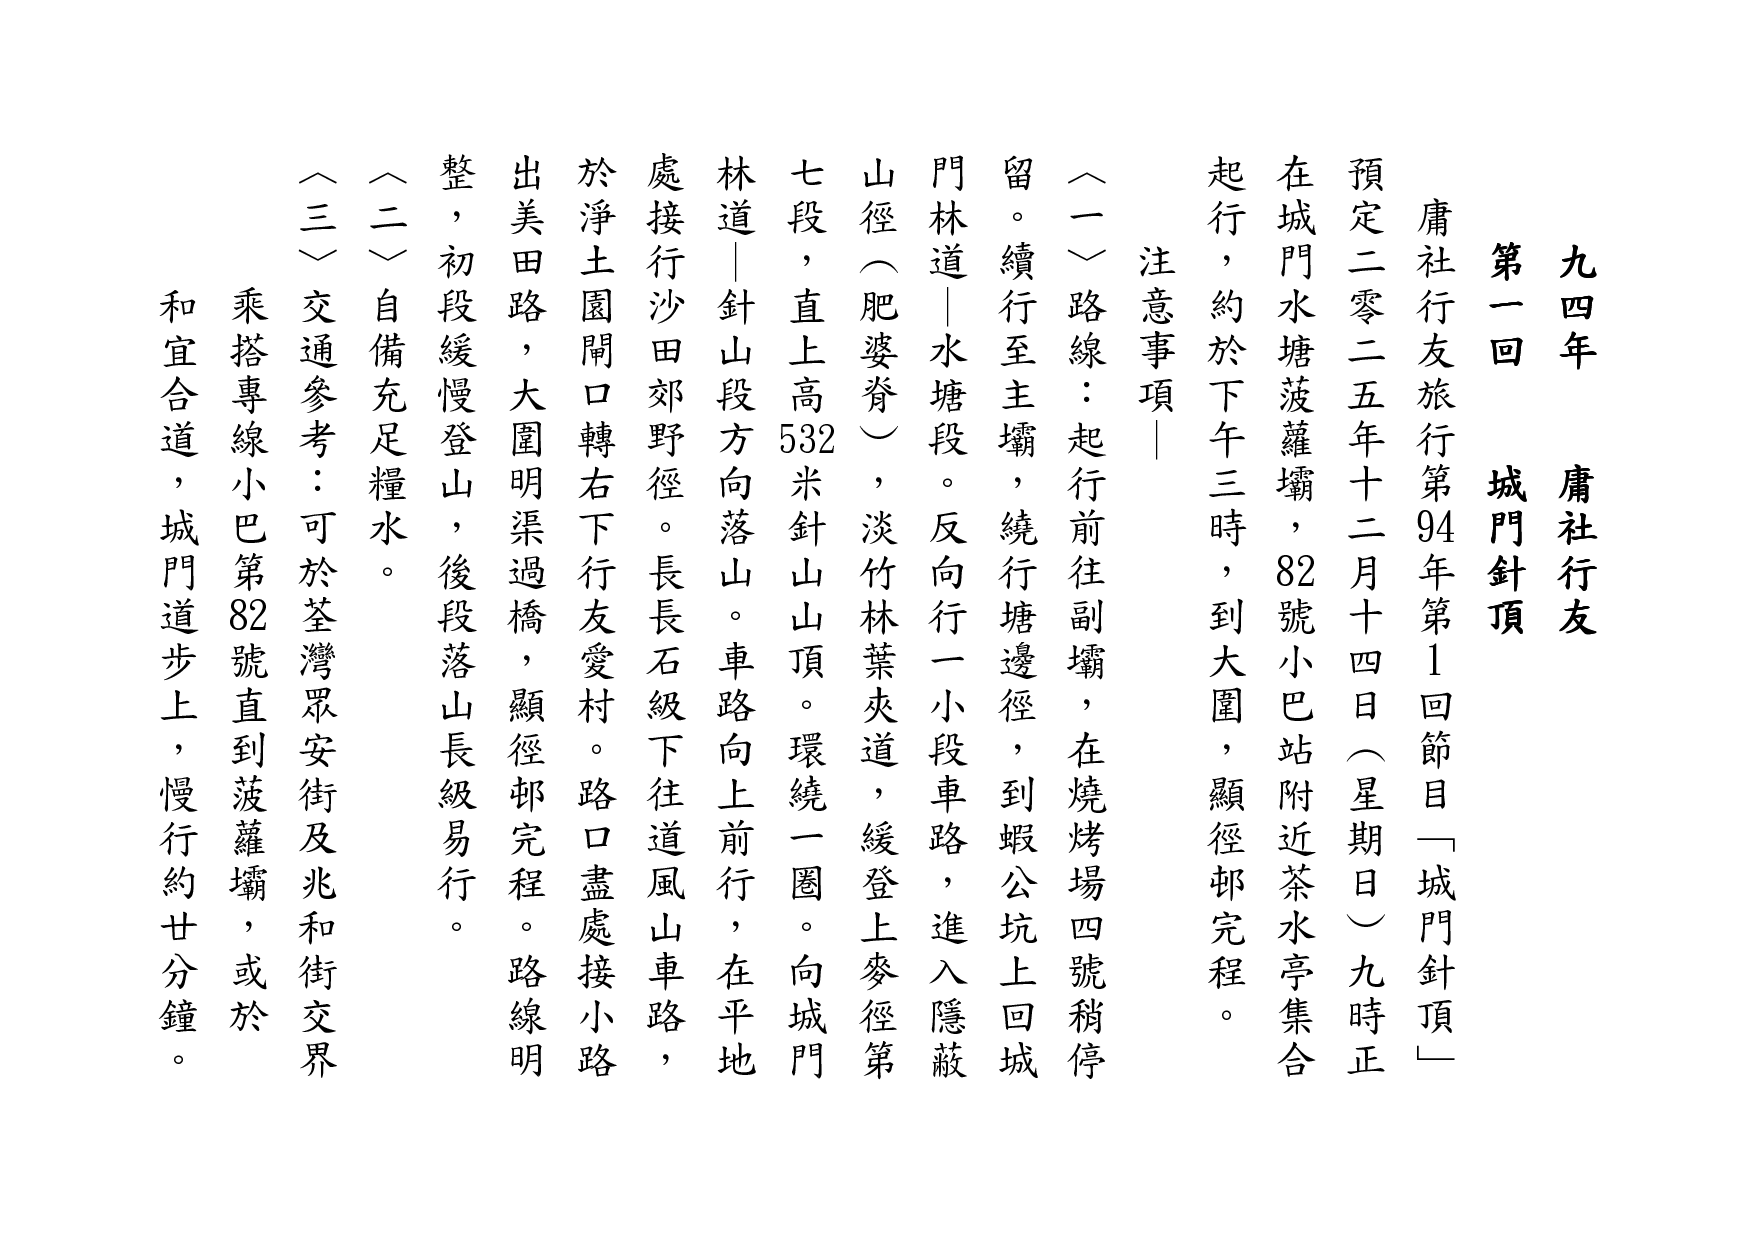 九四年　庸社行友
第一回　城門針頂
庸社行友旅行第94年第1回節目「城門針頂」
預定二零二五年十二月十四日（星期日）九時正
在城門水塘菠蘿壩，82號小巴站附近茶水亭集合
起行，約於下午三時，到大圍，顯徑邨完程。
注意事項—
〈一〉路線：起行前往副壩，在燒烤場四號稍停
留。續行至主壩，繞行塘邊徑，到蝦公坑上回城
門林道—水塘段。反向行一小段車路，進入隱蔽
山徑（肥婆脊），淡竹林葉夾道，緩登上麥徑第
七段，直上高532米針山山頂。環繞一圈。向城門
林道—針山段方向落山。車路向上前行，在平地
處接行沙田郊野徑。長長石級下往道風山車路，
於淨土園閘口轉右下行友愛村。路口盡處接小路
出美田路，大圍明渠過橋，顯徑邨完程。路線明
整，初段緩慢登山，後段落山長級易行。
〈二〉自備充足糧水。
〈三〉交通參考：可於荃灣眾安街及兆和街交界
乘搭專線小巴第82號直到菠蘿壩，或於
和宜合道，城門道步上，慢行約廿分鐘。